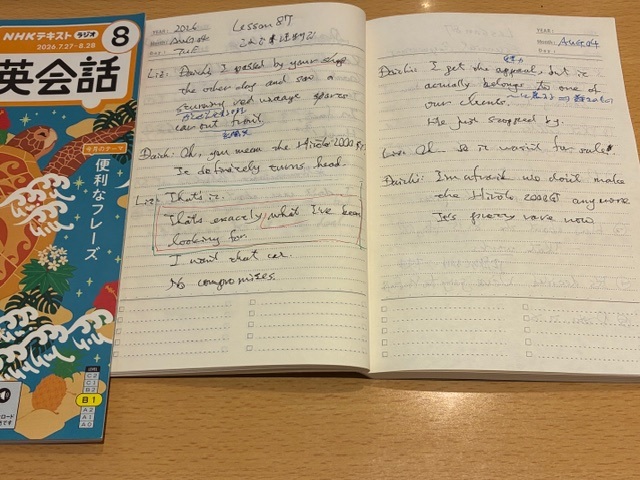 NHKテキスト ラジオ
2026.7.27-8.28
8
英会話
今月のテーマ
便利なフレーズ
LEVEL
C2
C1
B2
B1
A2
A1
A0
YEAR: 2026
Month: Aug 04
DAY: Tue
Lesson 87
Liz: Daichi I passed by your shop
the other day and saw a
stunning red vintage sports
car out front.
Daichi: Oh, you mean the Hiroto 2000
It definitely turns head.
Liz: That's it.
That's exactly what I've been
looking for.
I want that car.
No compromises.
YEAR:
Month: Aug 04
DAY:
Daichi: I get the appeal, but it
actually belongs to one of
our clients.
He just stopped by.
Liz: Oh so it wasn't for sale.
Daichi: I'm afraid we don't make
the Hiroto 2000GT any more
It's pretty rare now